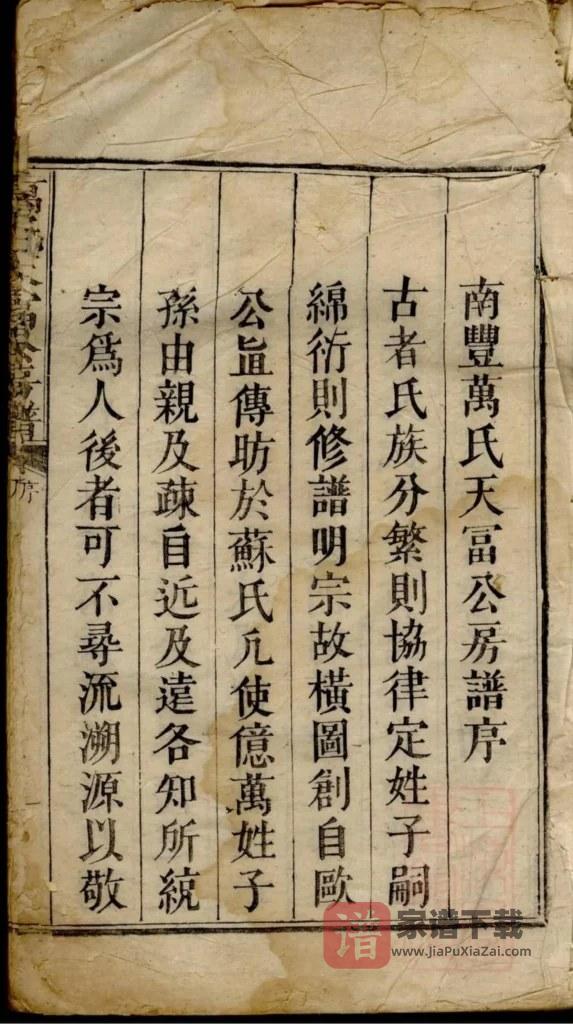 南豐萬氏天冨公房譜序
古者氏族分繁則協律定姓子嗣
綿衍則修譜明宗故橫圖創自歐
公直傳昉於蘇氏凢使億萬姓子
孫由親及疎自近及遠各知所統
宗爲人後者可不尋流溯源以敬
序
谱 家谱下载
www.JiaPuXiaZai.com